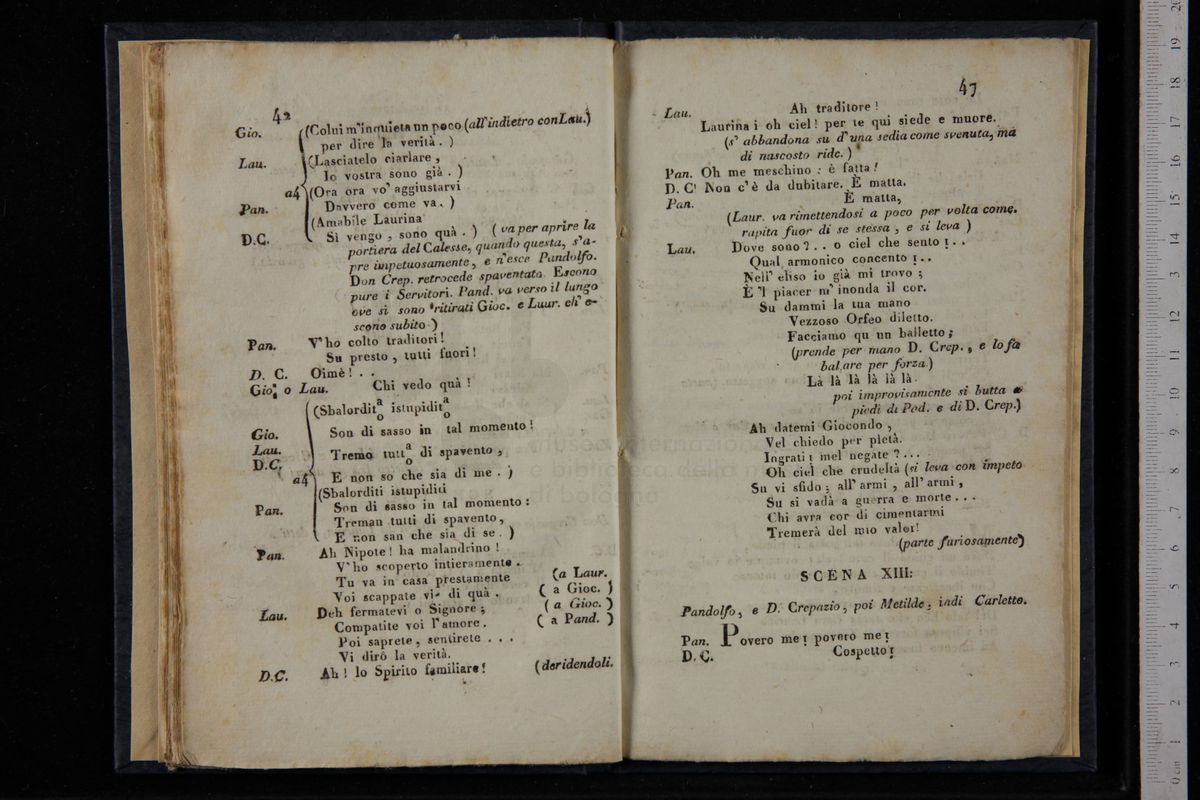 42
Gio. (Colui m'inquieta un poco (all'indietro con Lau.)
per dire la verità. )
Lau. (Lasciatelo ciarlare ,
Io vostra sono già . )
a4 (Ora ora vo' aggiustarvi
Pan. Davvero come va. )
(Amabile Laurina
D.C. Sì vengo , sono quà . ) ( va per aprire la
portiera del Calesse, quando questa, s'a-
pre impetuosamente, e n'esce Pandolfo.
Don Crep. retrocede spaventato. Escono
pure i Servitori. Pand. va verso il lungo
ove si sono ritirati Gioc. e Laur. ch' e-
scono subito )
Pan. V'ho colto traditori!
Su presto , tutti fuori!
D. C. Oimè! . .
Gio: o Lau. Chi vedo quà !
(Sbalordit a/o istupidit a/o
Gio. Son di sasso in tal momento!
Lau. Tremo tutt a/o di spavento ,
D.C.
a4 E non so che sia di me . )
(Sbalorditi istupiditi
Pan. Son di sasso in tal momento :
Treman tutti di spavento,
E non san che sia di se . )
Pan. Ah Nipote! ha malandrino !
V'ho scoperto intieramente.
Tu va in casa prestamente (a Laur.
Voi scappate via di quà . ( a Gioc. )
Lau. Deh fermatevi o Signore ; ( a Gioc. )
Compatite voi l'amore. ( a Pand. )
Poi saprete, sentirete . . .
Vi dirò la verità.
D.C. Ah ! lo Spirito familiare! (deridendoli.
47
Lau. Ah traditore !
Laurina i oh ciel! per te qui siede e muore.
(s' abbandona su d'una sedia come svenuta, ma
di nascosto ride. )
Pan. Oh me meschino : è fatta!
D. C. Non c'è da dubitare. È matta.
Pan. È matta,
(Laur. va rimettendosi a poco per volta come.
rapita fuor di se stessa , e si leva )
Lau. Dove sono ? . . o ciel che sento ! . .
Qual armonico concento ! . .
Nell' eliso io già mi trovo ;
È 'l piacer m' inonda il cor.
Su dammi la tua mano
Vezzoso Orfeo diletto.
Facciamo qu un balletto ;
(prende per mano D. Crep. , e lo fa
bal.are per forza.)
Là là là là là là.
poi improvisamente si butta a
piedi di Pad. e di D. Crep.)
Ah datemi Giocondo ,
Vel chiedo per pietà.
Ingrati ! mel negate ? . . .
Oh ciel che crudeltà (si leva con impeto
Su vi sfido ; all' armi , all' armi ,
Su si vadà a guerra e morte . . .
Chi avra cor di cimentarmi
Tremerà del mio valor!
(parte furiosamente)
SCENA XIII:
Pandolfo, e D. Crepazio, poi Metilde, indi Carletto.
Pan. Povero me ! povero me !
D. C. Cospetto !